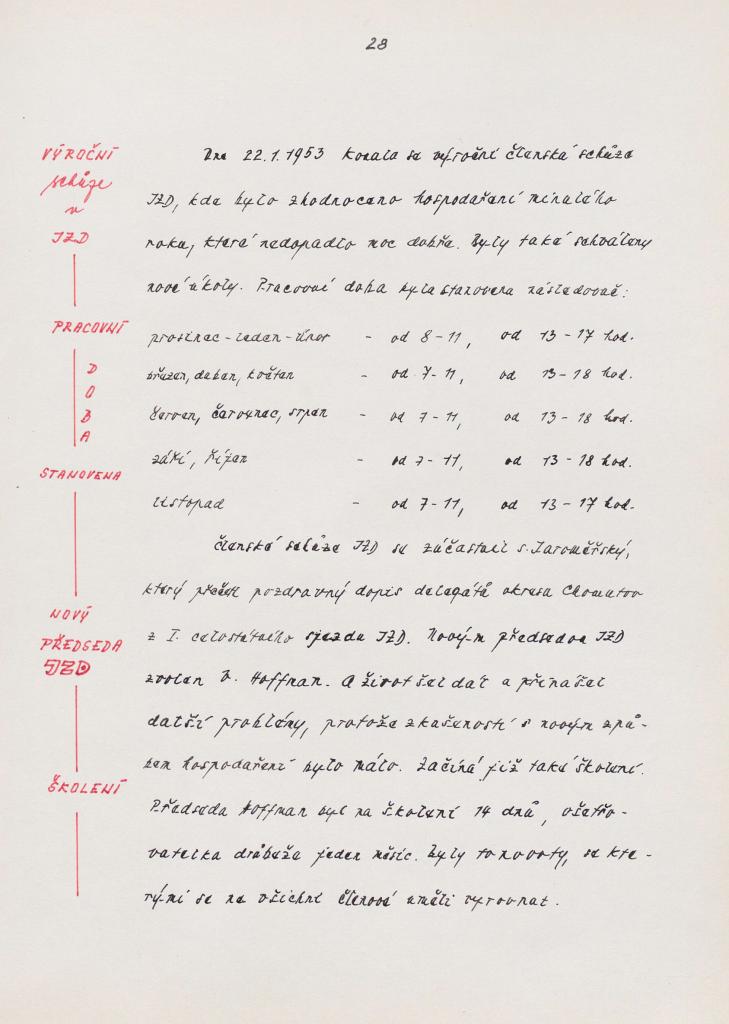 28
VÝROČNÍ
schůze
v
JZD
Dne 22.1.1953 konala se výroční členská schůze
JZD, kde bylo zhodnoceno hospodaření minulého
roku, které nedopadlo moc dobře. Byly také schváleny
nové úkoly. Pracovní doba byla stanovena následovně:
PRACOVNÍ
D
O
B
A
STANOVENA
prosinec - leden - únor - od 8-11, od 13-17 hod.
březen, duben, květen - od 7-11, od 13-18 hod.
červen, červenec, srpen - od 7-11, od 13-18 hod.
září, říjen - od 7-11, od 13-18 hod.
listopad - od 7-11, od 13-17 hod.
Členské schůze JZD se zúčastnil s. Jaroměřský,
který přečetl pozdravný dopis delegátů okresu Chomutov
z I. celostátního sjezdu JZD. Novým předsedou JZD
zvolen V. Hoffman. A život šel dál a přinášel
další problémy, protože zkušeností s novým způ-
bem hospodaření bylo málo. Začíná již také školení.
Předseda Hoffman byl na školení 14 dnů, ošetřo-
vatelka drůbeže jeden měsíc. Byly to novoty, se kte-
rými se ne všichni členové uměli vyrovnat.
NOVÝ
PŘEDSEDA
JZD
ŠKOLENÍ